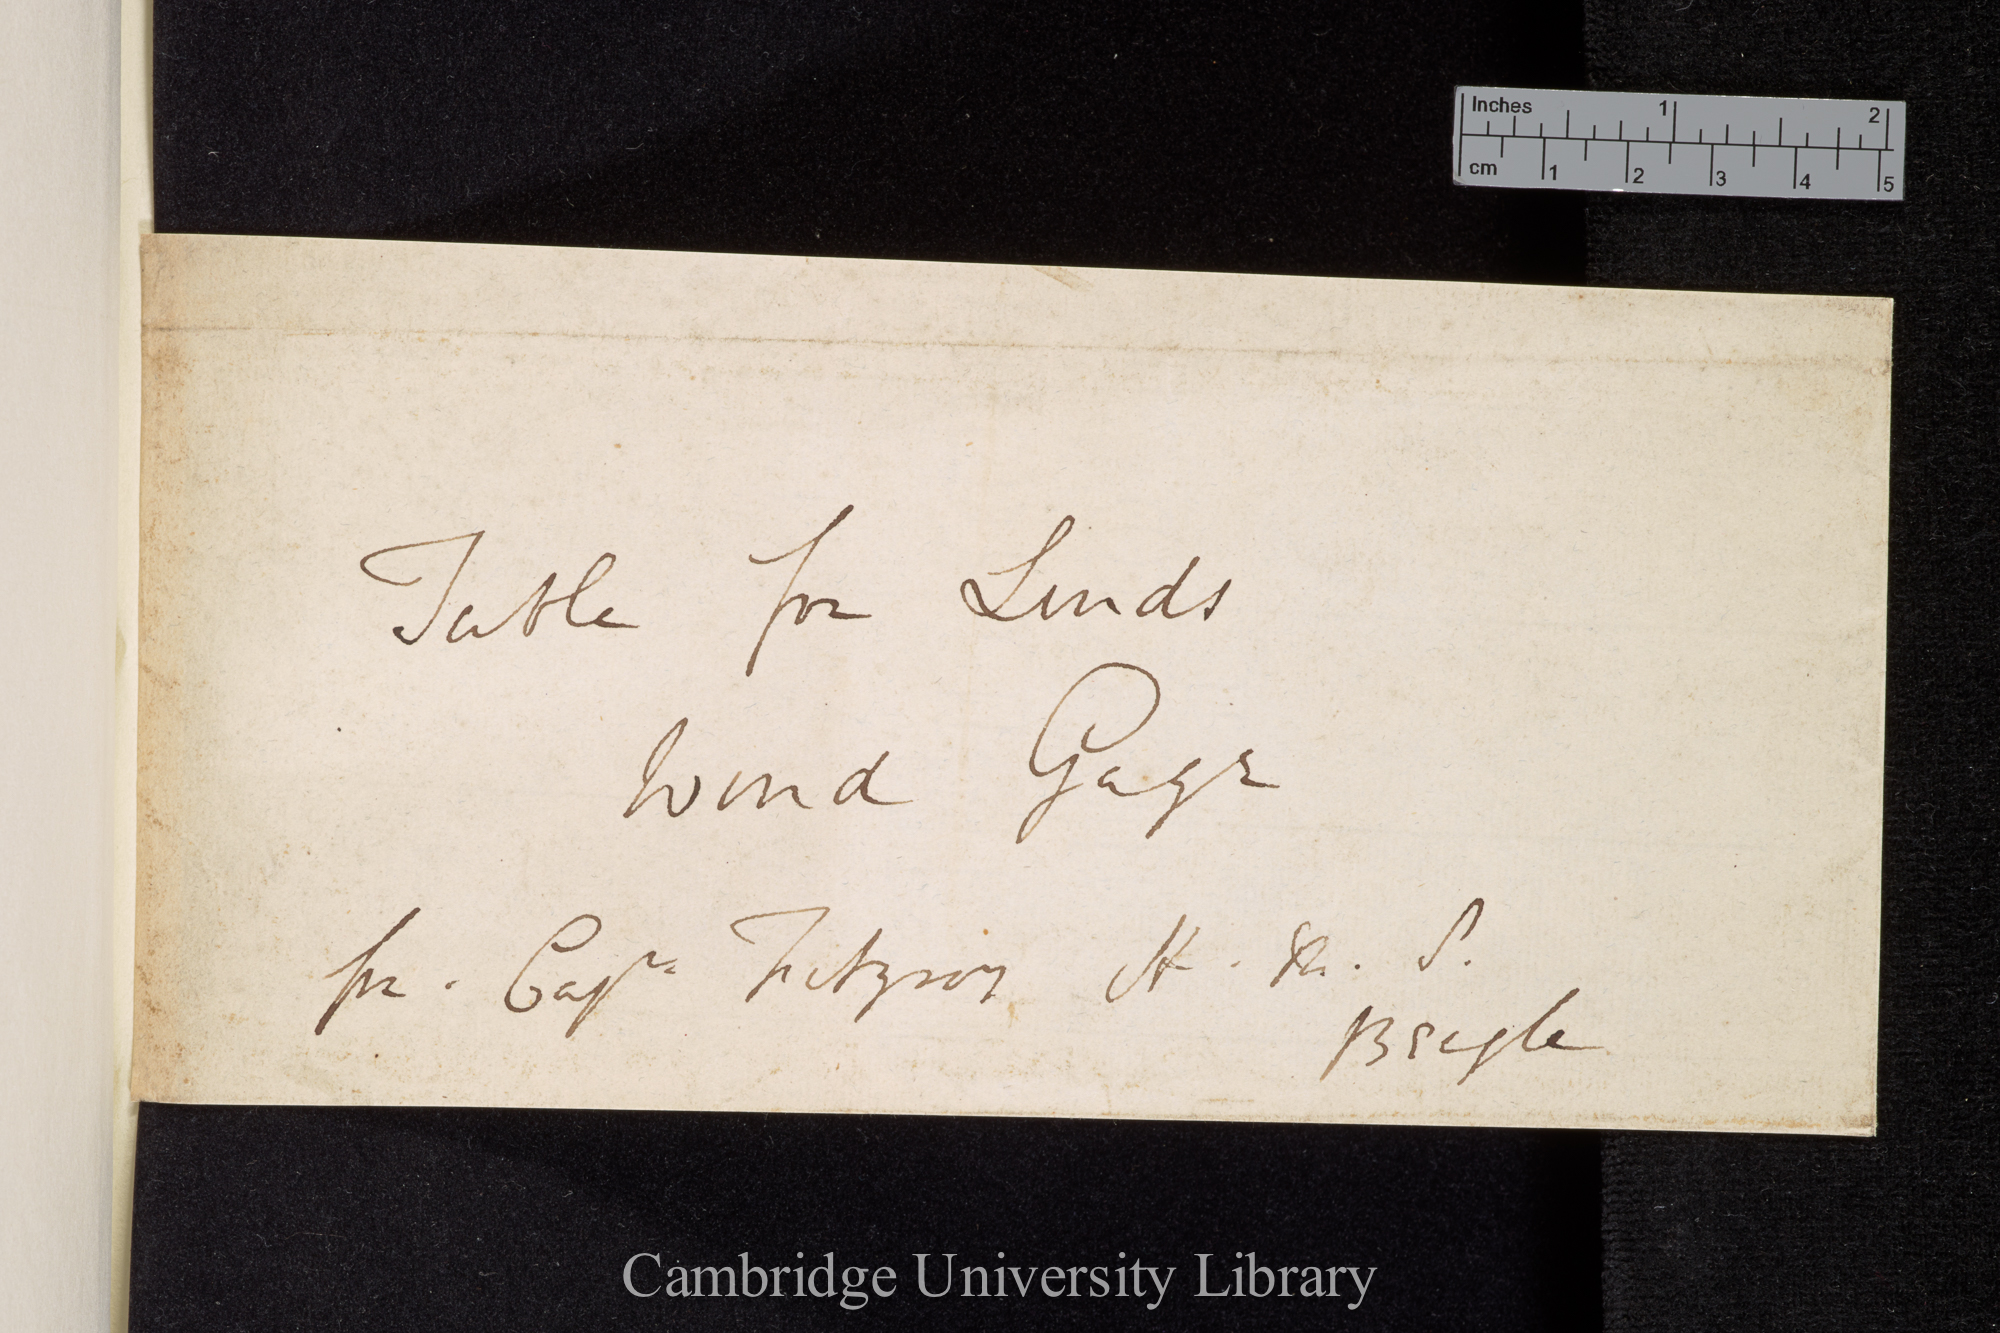 Inches 1 2
cm 1 2 3 4 5
Table for Linds
Wind Gage
for. Capn Fitzroy H. M. S.
Beagle
Cambridge University Library